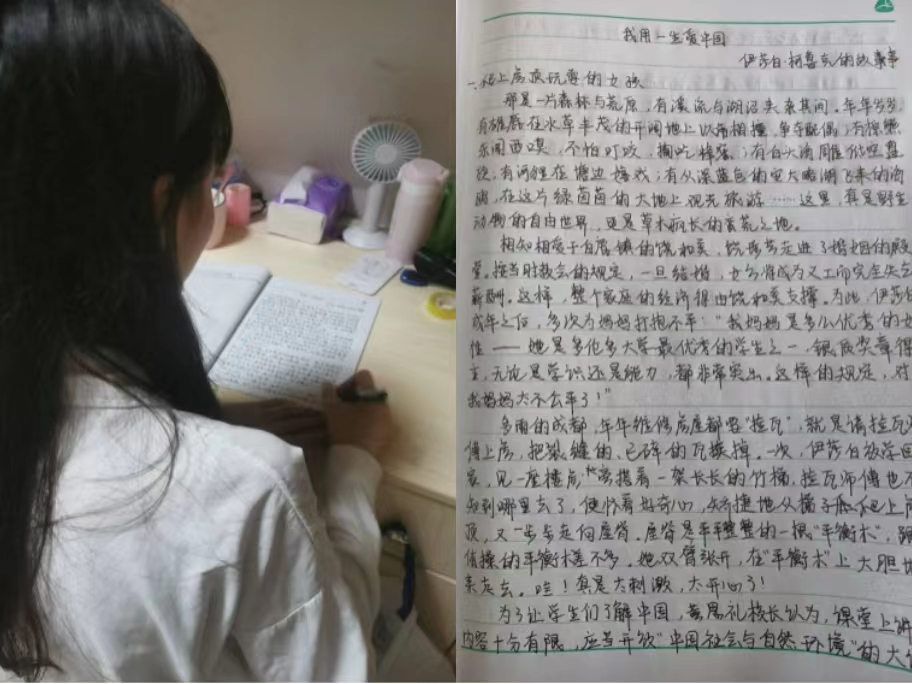 我用一生爱中国
伊莎白·柯鲁克的故事
一.爬上房顶玩耍的女孩
那是一片森林与荒原,有溪流与湖沼夹杂其间。年年岁岁,
有雄鹿在水草丰茂的开阔地上以角相撞,争夺配偶;有棕熊
东闻西嗅,不怕叮咬,掏吃蜂蜜;有白头海雕低空盘
旋,有河狸在塘边嬉戏;有从深蓝色的安大略湖飞来的海
鸥,在这片绿茵茵的大地上观光旅游……这里,真是野生
动物的自由世界,更是草木疯长的蛮荒之地。
相知相爱于自
的饶和美,
步走进了婚姻的殿
堂。按当时教会的规定,一旦结婚,女方将成为义工而完全失去
薪酬。这样,整个家庭的经济得由饶和美支撑。为此,伊莎白
成年之后,多次为妈妈打抱不平:“我妈妈是多么优秀的女
性——她是多伦多大学最优秀的学生之一,银质奖章得
主,无论是学识还是能力,都非常突出。这样的规定,对
我妈妈太不公平了!”
多雨的成都,年年维修房屋都要“捡瓦”,就是请捡瓦师
傅上房,把裂缝的、已碎的瓦换掉。一次,伊莎白放学回
家,见一座楼房旁搭着一架长长的竹梯,捡瓦师傅也不
知到哪里去了,便怀着好奇心,敏捷地从梯子爬上房
顶,又一步步走向屋脊。屋脊是平平整整的一根“平衡木”,跟
体操的平衡木差不多。她双臂张开,在“平衡木”上大胆地
走来走去。哇!真是太刺激,太开心了!
为了让学生们了解中国,黄思礼校长认为,课堂上讲
内容十分有限,应当开设“中国社会与自然环境”的大